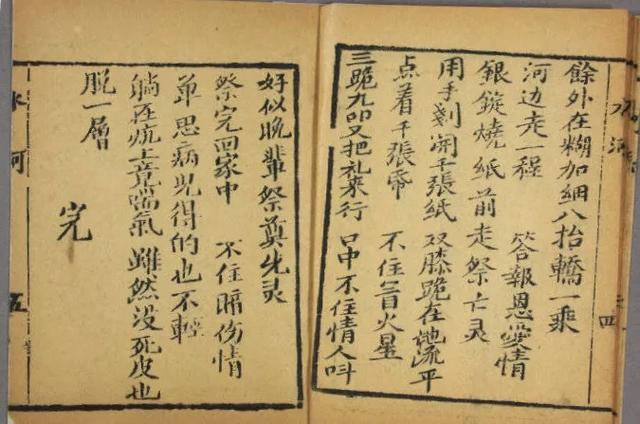 餘外在糊加綢八抬轎一乘
河边走一程 答報恩愛情
銀錠燒紙前走祭亡灵
用手剝開千張紙 双膝跪在地流平
点着千張帋 不住冒火星
三跪九叩又把礼來行 口中不住情人呌
好似晚輩祭奠先灵
祭完回家中 不住暗伤情
单思病兒得的也不輕
躺在炕上竟喘氣 雖然没死皮也
脱一層
完
河 四
河 五